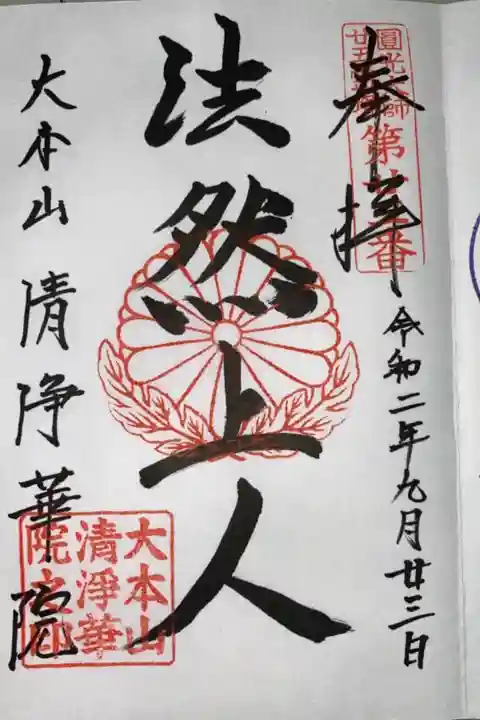 圓光大師
廿五
第廿三番
奉拝
令和二年九月廿三日
法然上人
大本山清浄華院
大本山
清淨華
院之印